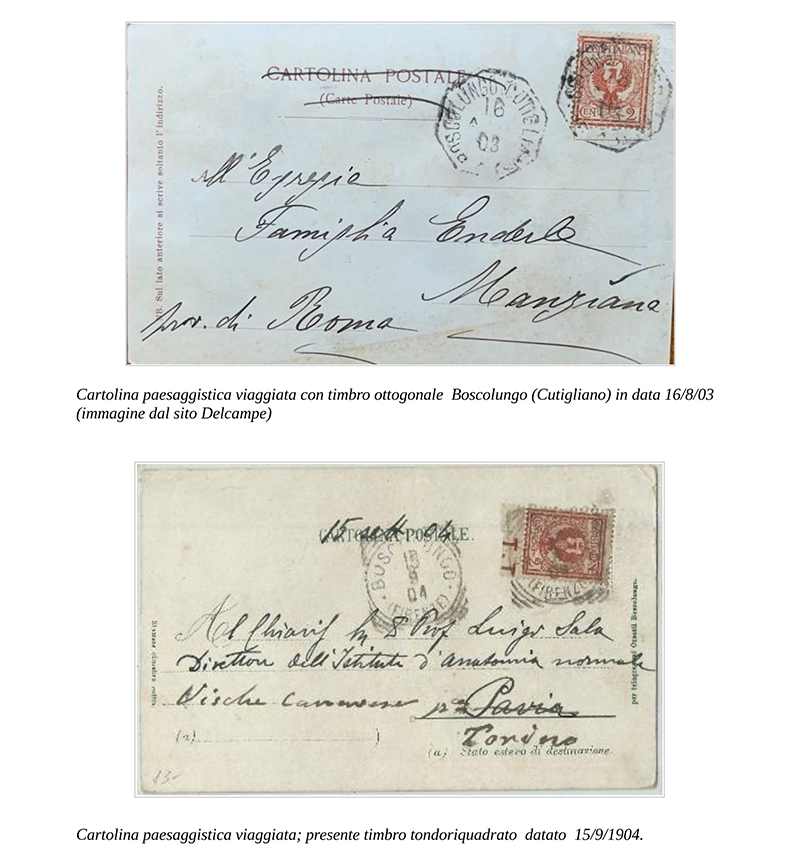 CARTOLINA POSTALE
(Carte Postale)
BOSCOLUNGO CUTIGLIANO
16
03
CEN. 2
NB. Sul lato anteriore si scrive soltanto l'indirizzo.
All'Egregia
Famiglia Enderle
Manziana
prov. di Roma
Cartolina paesaggistica viaggiata con timbro ottogonale Boscolungo (Cutigliano) in data 16/8/03
(immagine dal sito Delcampe)
15 sett 04
CARTOLINA POSTALE.
BOSCOLUNGO
9
04
(FIRENZE)
(FIRENZE)
Al Chiar
Prof Luigi Sala
Direttore dell'Istituto d'Anatomia normale
Vische Canavese
Pavia
Torino
(a)
(a) Stato estero di destinazione.
per telegrafo Orsatti Boscolungo.
13-
Cartolina paesaggistica viaggiata; presente timbro tondoriquadrato datato 15/9/1904.